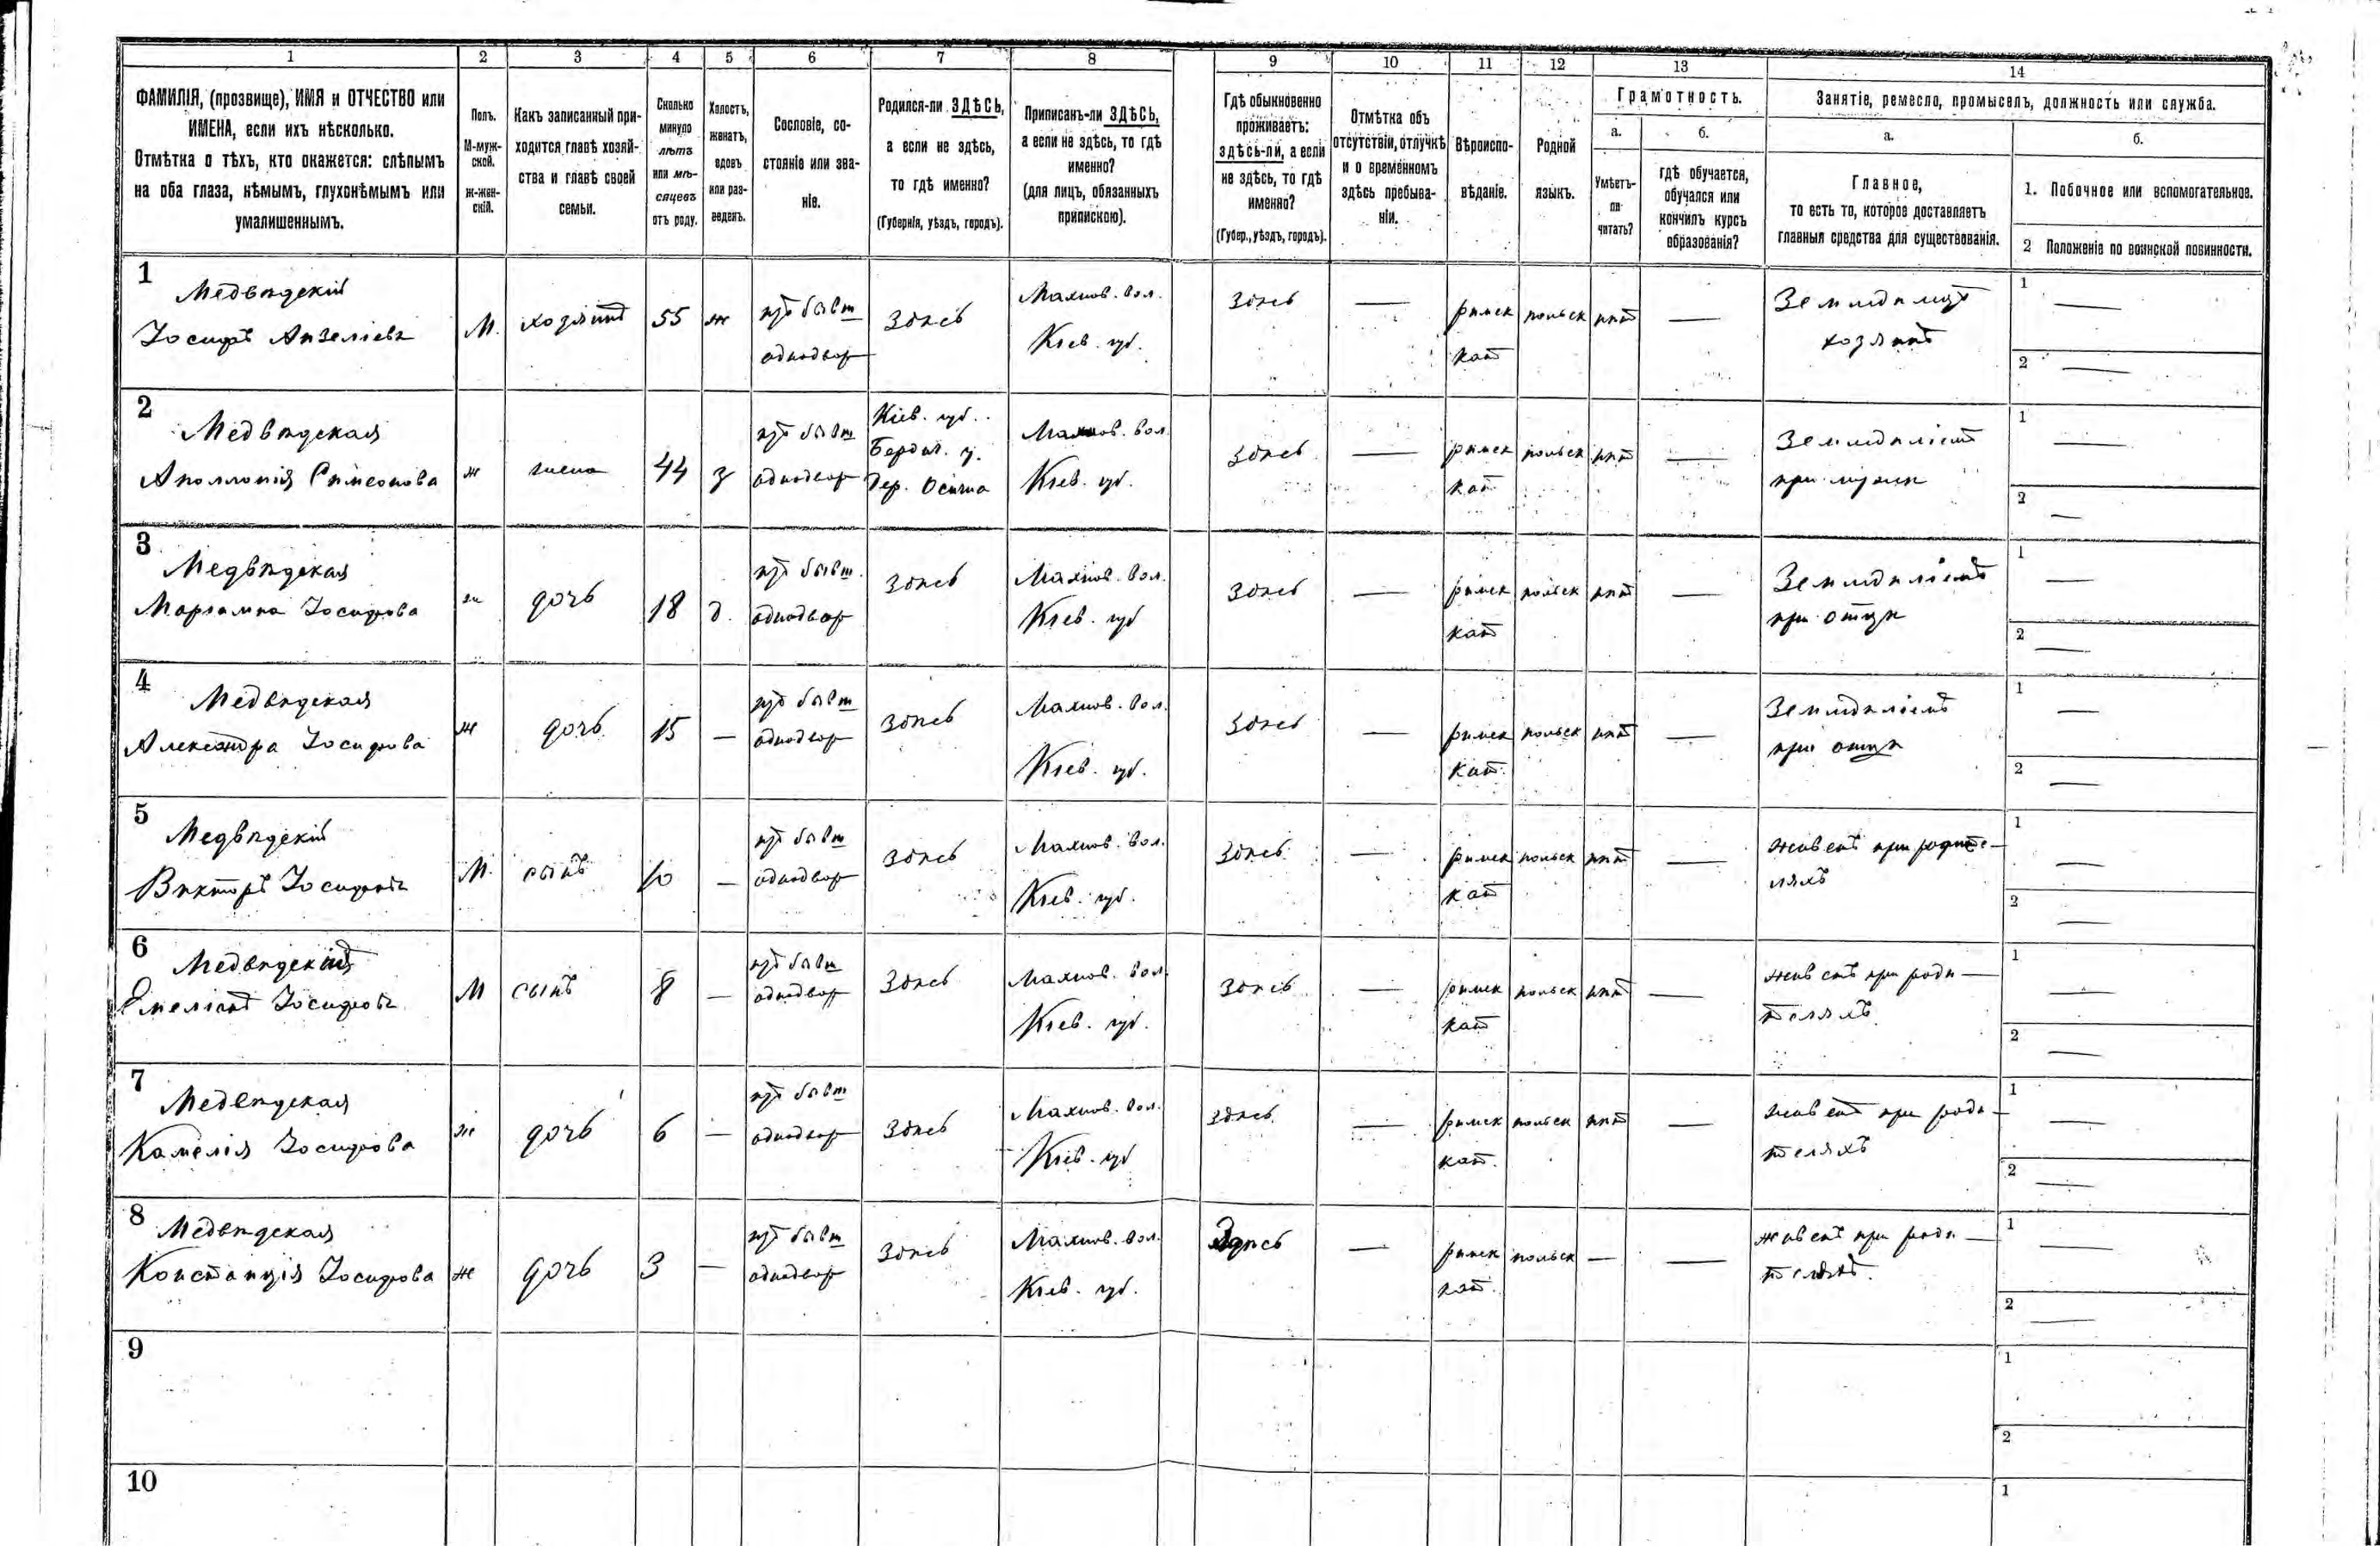 1 2 3 4 5 6 7 8 9 10 11 12 13 14
ФАМИЛІЯ, (прозвище), ИМЯ и ОТЧЕСТВО или
ИМЕНА, если ихъ нѣсколько.
Отмѣтка о тѣхъ, кто окажется: слѣпымъ
на оба глаза, нѣмымъ, глухонѣмымъ или
умалишеннымъ.
Полъ.
М-муж-
ской.
ж-жен-
скій.
Какъ записанный при-
ходится главѣ хозяй-
ства и главѣ своей
семьи.
Сколько
минуло
лѣтъ
или мѣ-
сяцевъ
отъ роду.
Холостъ,
женатъ,
вдовъ
или раз-
веденъ.
Сословіе, со-
стояніе или зва-
ніе.
Родился-ли ЗДѢСЬ,
а если не здѣсь,
то гдѣ именно?
(Губернія, уѣздъ, городъ).
Приписанъ-ли ЗДѢСЬ,
а если не здѣсь, то гдѣ
именно?
(для лицъ, обязанныхъ
припискою).
Гдѣ обыкновенно
проживаетъ:
здѣсь-ли, а если
не здѣсь, то гдѣ
именно?
(Губер., уѣздъ, городъ).
Отмѣтка объ
отсутствіи, отлучкѣ
и о временномъ
здѣсь пребыва-
ніи.
Вѣроиспо-
вѣданіе.
Родной
языкъ.
Грамотность.
а.
Умѣетъ-
ли
читать?
б.
гдѣ обучается,
обучался или
кончилъ курсъ
образованія?
Занятіе, ремесло, промыселъ, должность или служба.
а.
Главное,
то есть то, которое доставляетъ
главныя средства для существованія.
б.
1. Побочное или вспомогательное.
2 Положеніе по воинской повинности.
1
Медвѣдскій
Іосифъ Анзелiевъ
М. хозяинъ 55 ж
изъ бывш
однодвор
Здѣсь
Махнов. вол.
Кіев. губ.
Здѣсь —
римск
кат
польск нѣтъ —
хозяинъ
1 —
2 —
2
Медвѣдская
Аполлонія Симеонова
ж жена 44 з
изъ бывш
однодвор
Кіев. губ.
Бердич. у.
Дер. Осична
Махнов. вол.
Кіев. губ.
Здѣсь —
римск
кат
польск нѣтъ —
Земледѣліемъ
при мужѣ
1 —
2 —
3
Медвѣдская
Маріанна Іосифова
ж дочь 18 д.
изъ бывш.
однодвор
Здѣсь
Махнов. вол.
Кіев. губ
Здѣсь —
римск
кат
польск нѣтъ —
Земледѣліемъ
при отцѣ
1 —
2 —
4
Медвѣдская
Александра Іосифова
ж дочь 15 —
изъ бывш
однодвор
Здѣсь
Махнов. вол.
Кіев. губ.
Здѣсь —
римск
кат.
польск нѣтъ —
Земледѣліемъ
при отцѣ
1 —
2 —
5
Медвѣдскій
Викторъ Іосифовъ
М. сынъ 10 —
изъ бывш
однодвор
Здѣсь
Махнов. вол.
Кіев. губ.
Здѣсь —
римск
кат
польск нѣтъ —
живетъ при родите-
ляхъ
1 —
2 —
6
Медвѣдскій
Емеліанъ Іосифовъ
М сынъ 8 —
изъ бывш
однодвор
Здѣсь
Махнов. вол.
Кіев. губ.
Здѣсь —
римск
кат
польск нѣтъ —
живетъ при роди-
теляхъ
1 —
2 —
7
Медвѣдская
Камелія Іосифова
ж дочь 6 —
изъ бывш
однодвор
Здѣсь
Махнов. вол.
Кіев. губ
Здѣсь —
римск
кат.
польск нѣтъ —
живетъ при роди-
теляхъ
1 —
2 —
8
Медвѣдская
Констанція Іосифова
ж дочь 3 —
изъ бывш
однодвор
Здѣсь
Махнов. вол.
Кіев. губ.
Здѣсь —
римск
кат.
польск — —
живетъ при роди-
теляхъ.
1 —
2 —
9
1
2
10
1